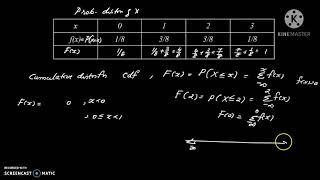 Prob. distn of X
x 0 1 2 3
f(x)=P(X=x) 1/8 3/8 3/8 1/8
F(x) 1/8 1/8+3/8=4/8 4/8+3/8=7/8 7/8+1/8=1
Cumulative distnfn cdf, F(x) = P(X≤x) = Σ f(x)
F(x) = 0 , x<0
F(2) = P(X≤2) = Σ f(x)
, 0≤x<1
F(0) = Σ f(x)
-∞
KINEMASTER
RECORDED WITH
SCREENCAST MATIC